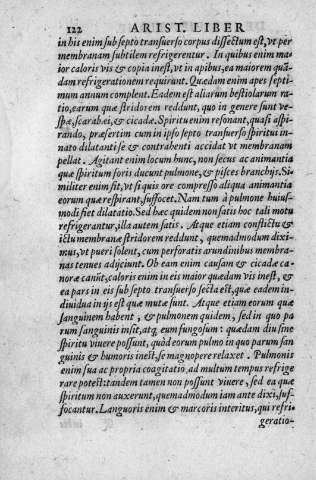 122 ARIST. LIBER
in his enim sub septo transuerso corpus dissectum est, vt per
membranam subtilem refrigerentur. In quibus enim ma
ior caloris vis & copia inest, vt in apibus, ea maiorem quã
dam refrigerationem requirunt. Quædam enim apes septi
mum annum complent. Eadem est aliarum bestiolarum ra
tio, earum quæ stridorem reddunt, quo in genere sunt ve-
spæ, scarabæi, & cicadæ. Spiritu enim resonant, quasi aspi-
rando, præsertim cum in ipso septo transuerso spiritui in-
nato dilatanti se & contrahenti accidat vt membranam
pellat. Agitant enim locum hunc, non secus ac animantia
quæ spiritum foris ducunt pulmone, & pisces branchijs. Si-
militer enim fit, vt si quis ore compresso aliqua animantia
eorum quæ respirant, suffocet. Nam tum à pulmone huius-
modi fiet dilatatio. Sed hæc quidem non satis hoc tali motu
refrigerantur, illa autem satis. Atque etiam conflictu &
ictu membranæ stridorem reddunt, quemadmodum dixi-
mus, vt pueri solent, cum perforatis arundinibus membra-
nas tenues adijciunt. Ob eam enim causam & cicadæ ca-
noræ canũt, caloris enim in eis maior quædam vis inest, &
ea pars in eis sub septo transuerso secta est, quæ eadem in-
diuidua in ijs est quæ mutæ sunt. Atque etiam eorum quæ
sanguinem habent, & pulmonem quidem, sed in quo pa
rum sanguinis insit, atq; eum fungosum: quædam diu sine
spiritu viuere possunt, quòd eorum pulmo in quo parum san
guinis & humoris inest, se magnopere relaxet. Pulmonis
enim sua ac propria coagitatio, ad multum tempus refrige
rare potest: tandem tamen non possunt viuere, sed ea quæ
spiritum non auxerunt, quemadmodum iam ante dixi, suf-
focantur. Languoris enim & marcoris interitus, qui refri-
geratio-